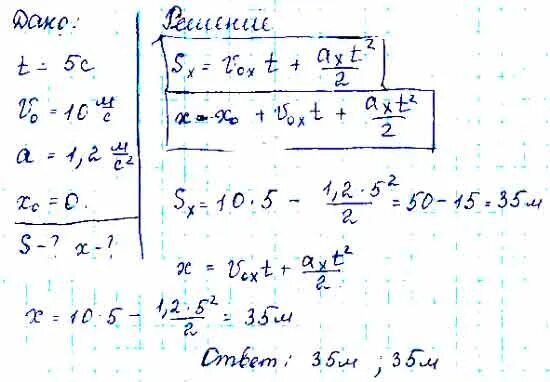 Дано:
t = 5с
v₀ = 10 м/с
a = 1,2 м/с²
x₀ = 0.
S - ? x - ?
Решение
Sₓ = v₀ₓ t + aₓ t²/2
x = x₀ + v₀ₓ t + aₓt²/2
Sₓ = 10 · 5 - 1,2 · 5²/2 = 50 - 15 = 35м
x = v₀ₓt + aₓt²/2
x = 10 · 5 - 1,2 · 5²/2 = 35м
Ответ: 35м ; 35м